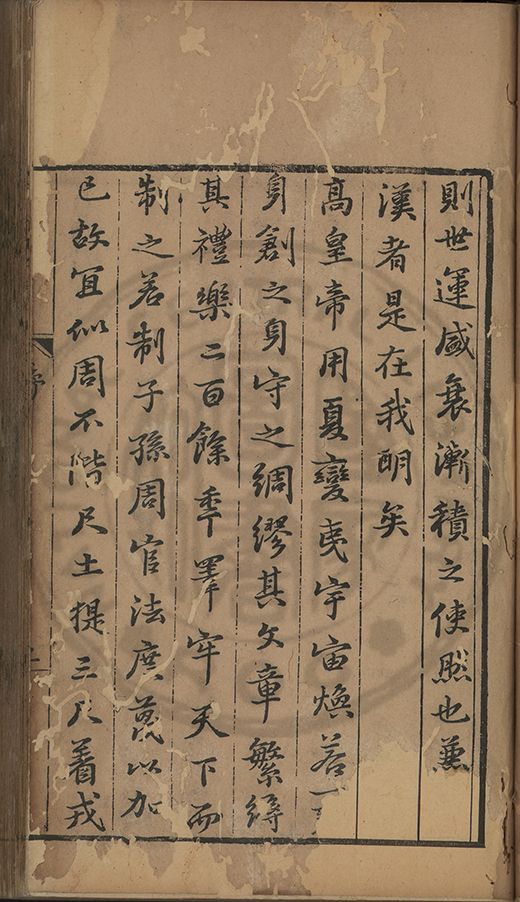 則世運盛衰漸積之使然也兼
漢者是在我明矣
高皇帝用夏變夷宇宙煥若一
身創之身守之綢繆其文章繁縟
其禮樂二百餘秊睪牢天下而
制之若制子孫周官法度蔑以加
已故冝似周不階尺土提三尺着戎
序